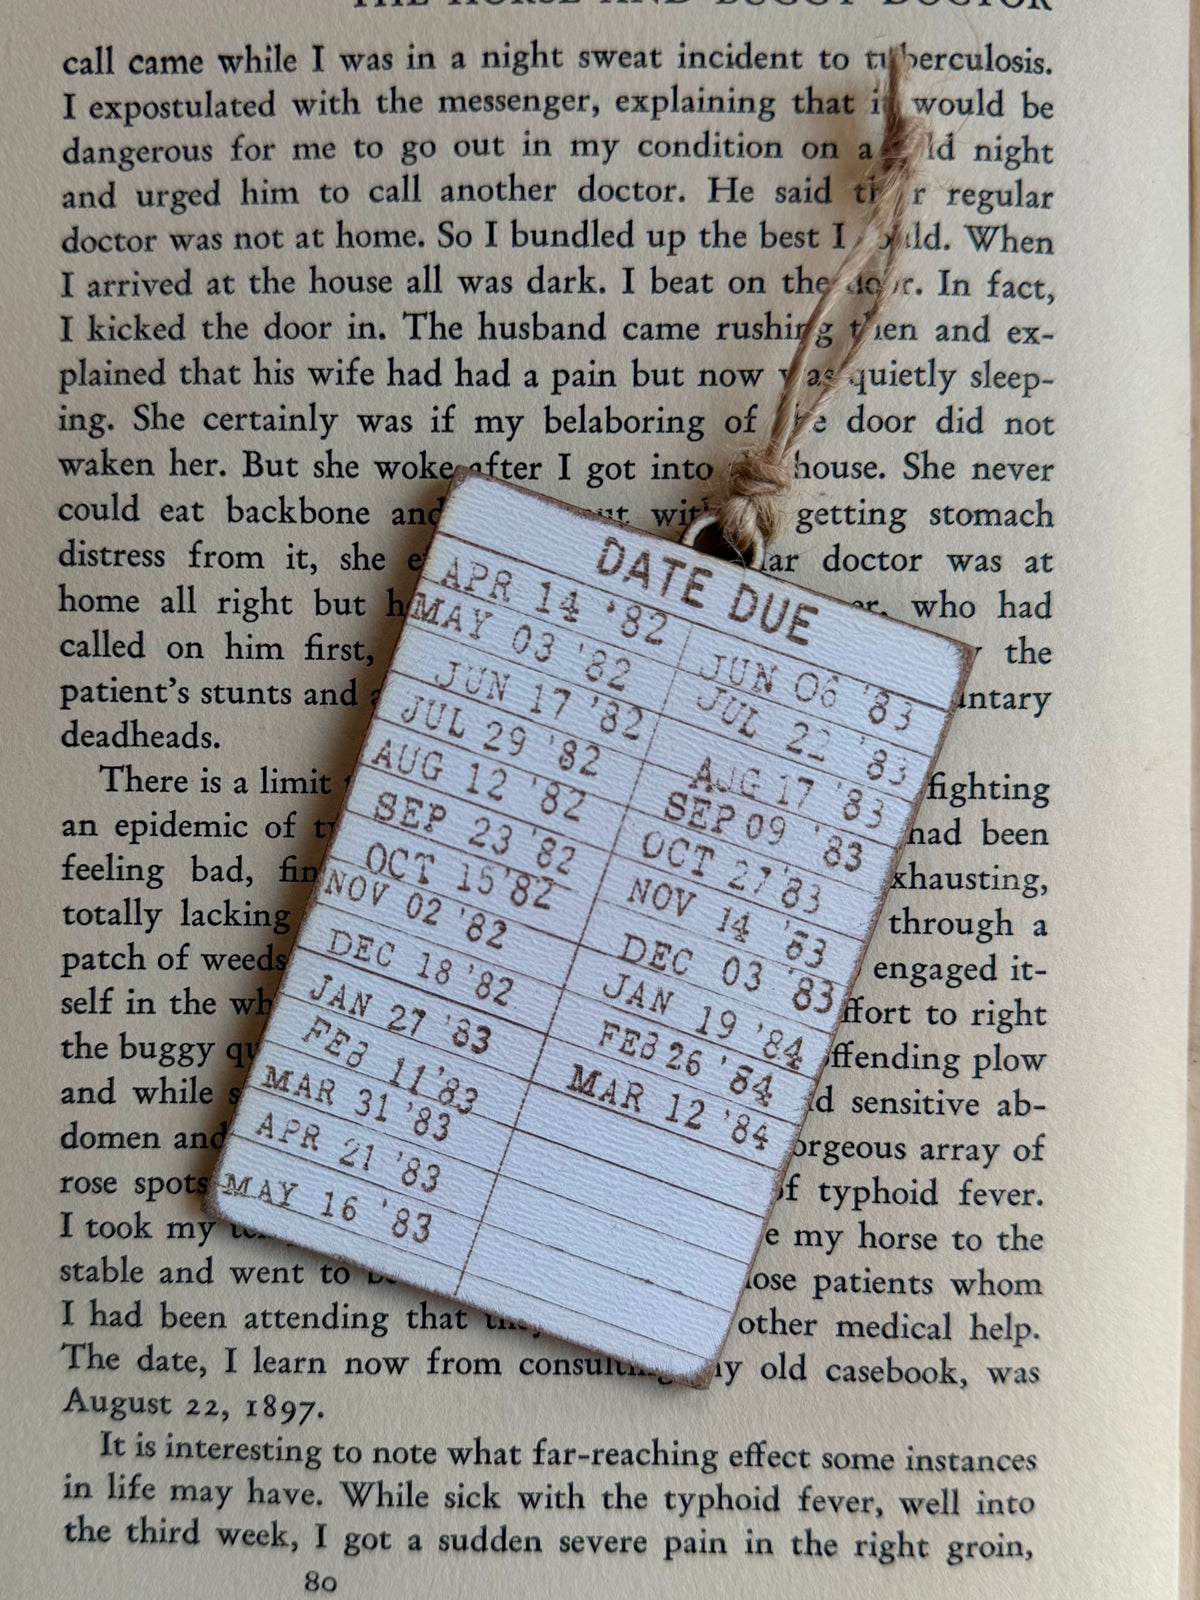 THE HORSE AND BUGGY DOCTOR
call came while I was in a night sweat incident to tuberculosis.
I expostulated with the messenger, explaining that it would be
dangerous for me to go out in my condition on a cold night
and urged him to call another doctor. He said their regular
doctor was not at home. So I bundled up the best I could. When
I arrived at the house all was dark. I beat on the door. In fact,
I kicked the door in. The husband came rushing then and ex-
plained that his wife had had a pain but now was quietly sleep-
ing. She certainly was if my belaboring of the door did not
waken her. But she woke after I got into house. She never
could eat backbone and getting stomach
distress from it, she doctor was at
home all right but who had
called on him first, the
patient's stunts and
deadheads.
There is a limit fighting
an epidemic of had been
feeling bad,
totally lacking through a
patch of weeds engaged it-
self in the to right
the buggy plow
and while sensitive ab-
domen and array of
rose spots of typhoid fever.
I took my my horse to the
stable and went to patients whom
I had been attending that other medical help.
The date, I learn now from consulting my old casebook, was
August 22, 1897.
It is interesting to note what far-reaching effect some instances
in life may have. While sick with the typhoid fever, well into
the third week, I got a sudden severe pain in the right groin,
80
DATE DUE
APR 14 '82
MAY 03 '82
JUN 17 '82
JUL 29 '82
AUG 12 '82
SEP 23 '82
OCT 15 '82
NOV 02 '82
DEC 18 '82
JAN 27 '83
FEB 11 '83
MAR 31 '83
APR 21 '83
MAY 16 '83
JUN 06 '83
JUL 22 '83
AUG 17 '83
SEP 09 '83
OCT 27 '83
NOV 14 '83
DEC 03 '83
JAN 19 '84
FEB 26 '84
MAR 12 '84